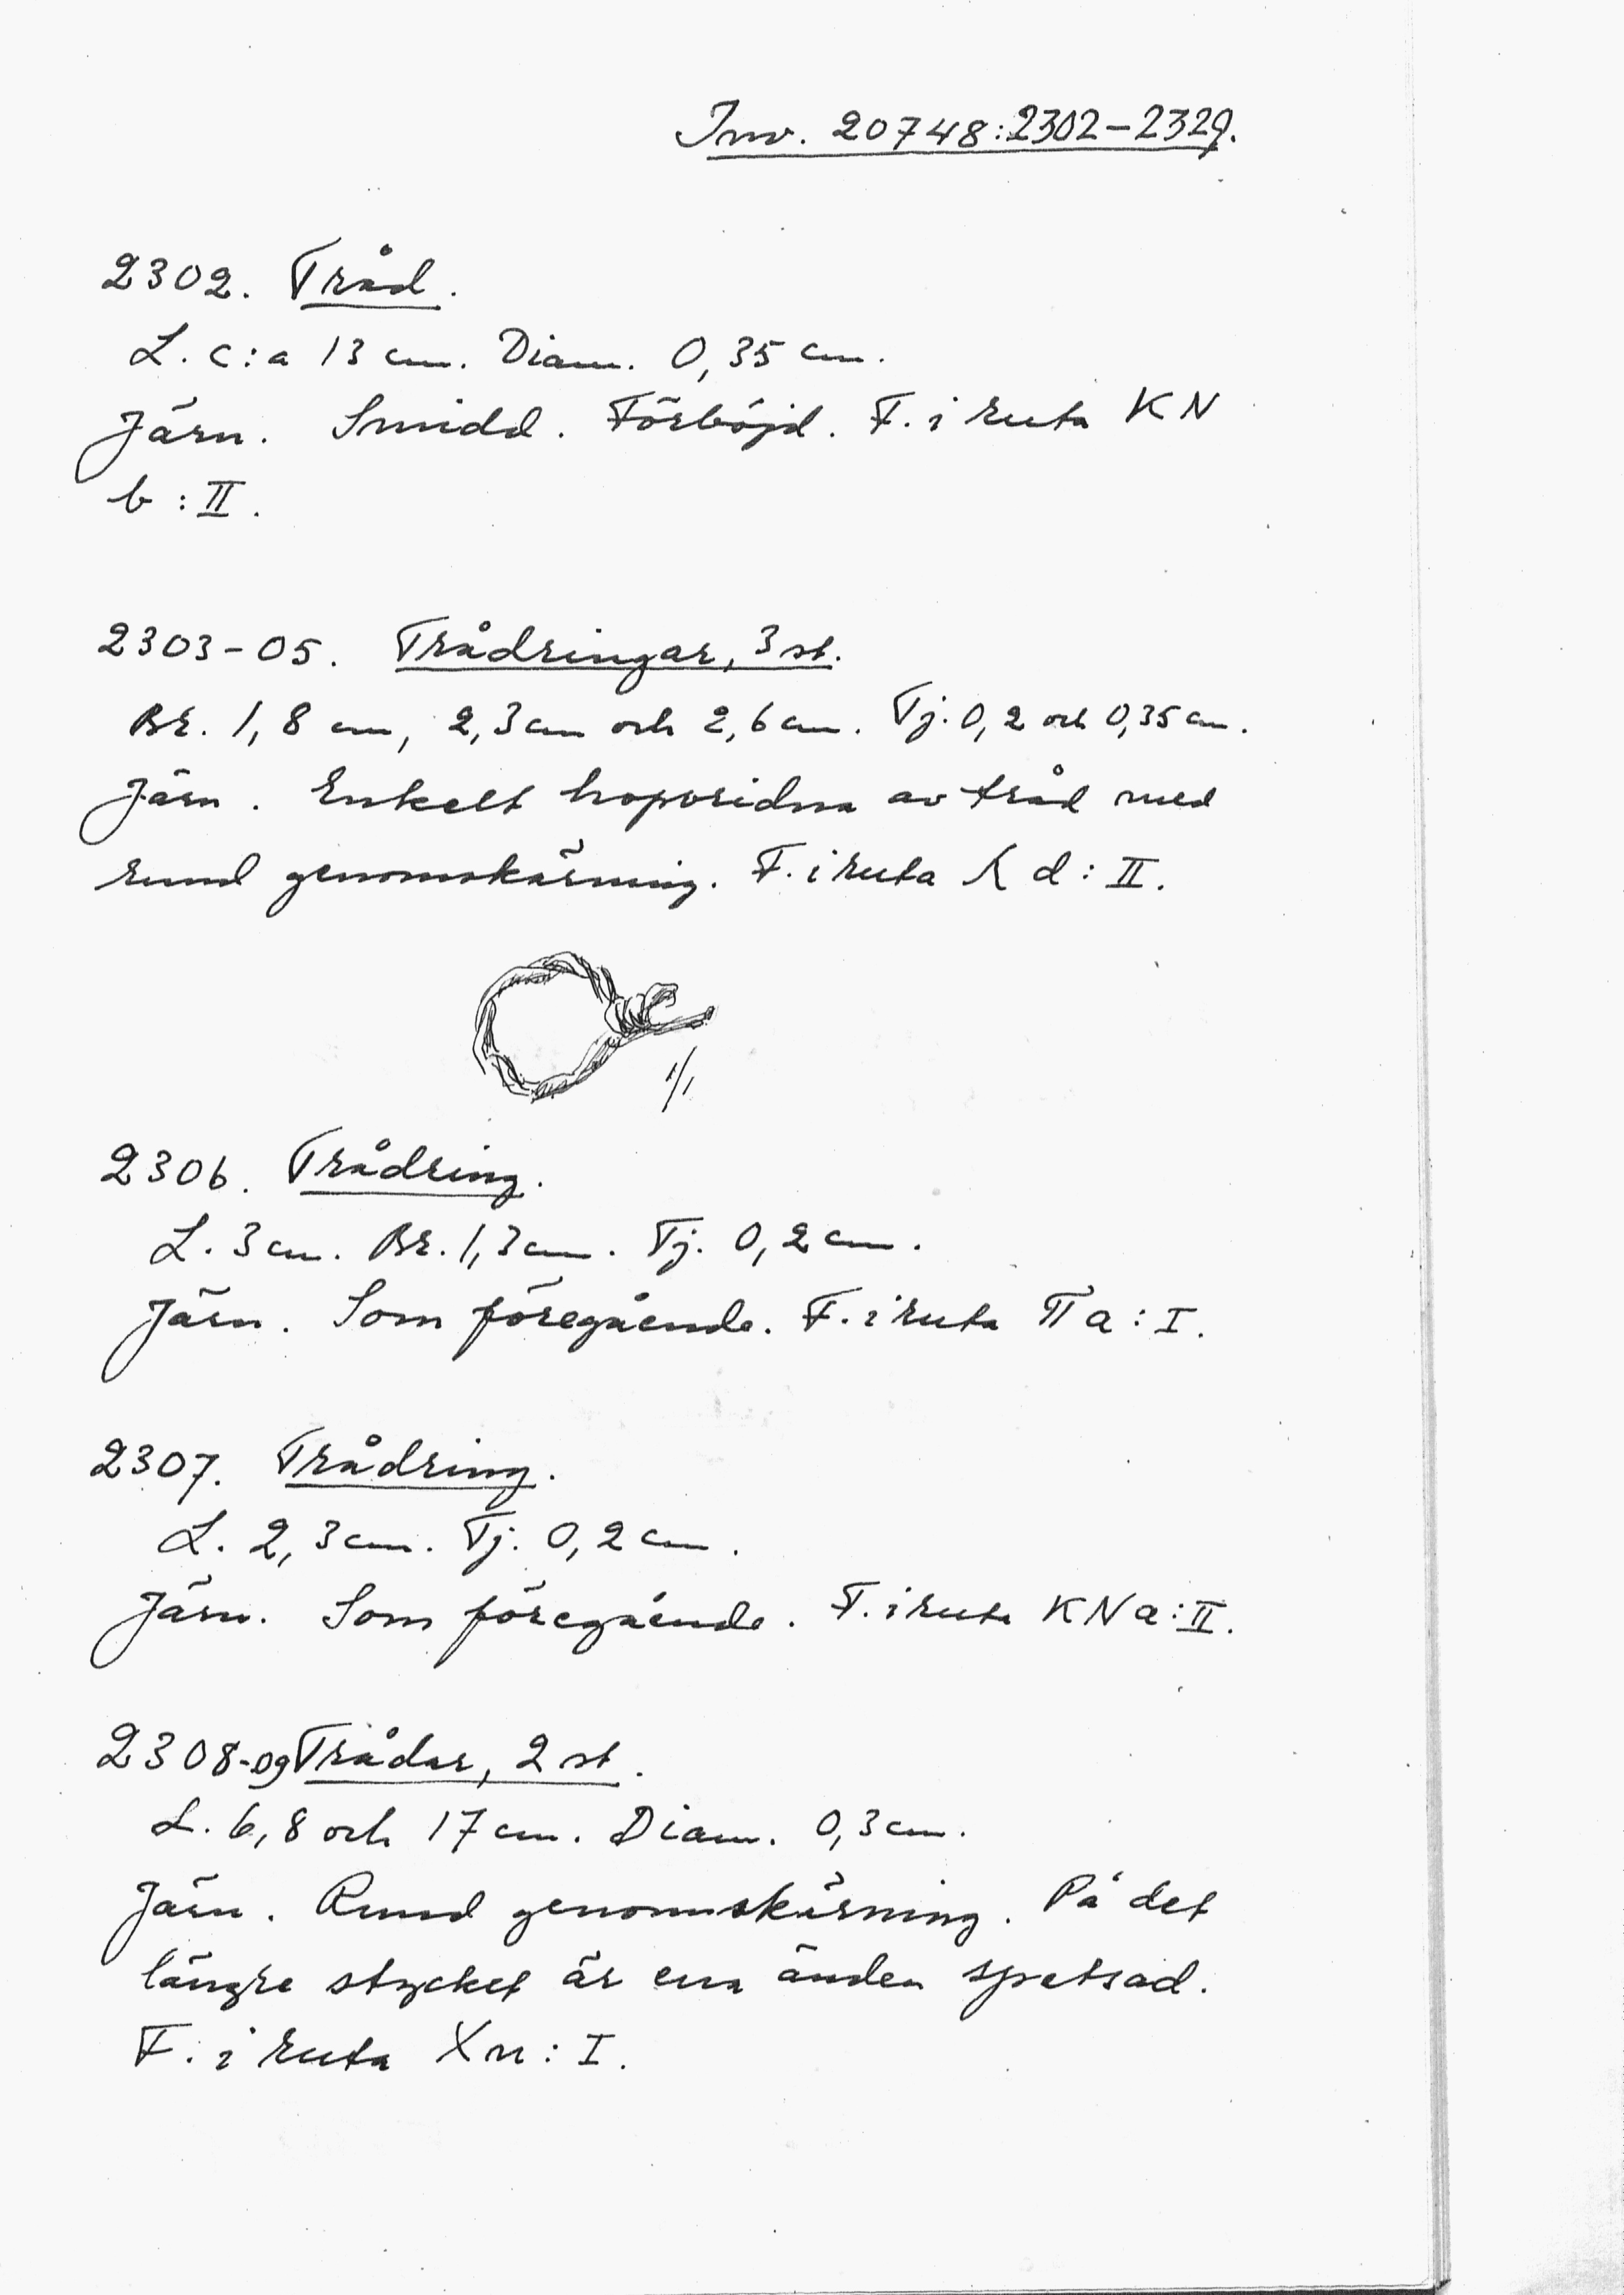 Inv. 20748:2302-2329.
2302. Tråd.
L. c:a 13 cm. Diam. 0,35 cm.
Järn. Smidd. Förböjd. F. i ruta KN
b : II.
2303-05. Trådringar, 3 st.
Br. 1,8 cm, 2,3 cm och 2,6 cm. Tj. 0,2 och 0,35 cm.
Järn. Enkelt hopvridna av tråd med
rund genomskärning. F. i ruta d : II.
1/1
2306. Trådring.
L. 3 cm. Br. 1,3 cm. Tj. 0,2 cm.
Järn. Som föregående. F. i ruta Π a : I.
2307. Trådring.
L. 2,3 cm. Tj. 0,2 cm.
Järn. Som föregående. F. i ruta KN a : II.
2308-09 Trådar, 2 st.
L. 6,8 och 17 cm. Diam. 0,3 cm.
Järn. Rund genomskärning. På det
längre stycket är ena änden spetsad.
F. i ruta X n : I.